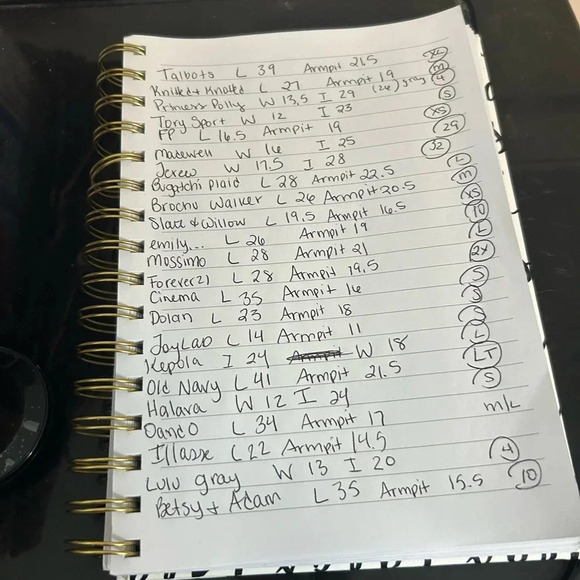 Talbots L 39 Armpit 21.5 XL
Knitted + Knotted L 27 Armpit 19 M
Princess Polly W 13.5 I 29 (26) gray 4
Tory Sport W 12 I 23 S
FP L 16.5 Armpit 19 XS
Madewell W 16 I 25 29
Jcrew W 17.5 I 28 32
Bugatchi plaid L 28 Armpit 22.5 L
Brochu Walker L 26 Armpit 20.5 M
Slate & Willow L 19.5 Armpit 16.5 XS
emily... L 26 Armpit 19 10
Mossimo L 28 Armpit 21 L
Forever21 L 28 Armpit 19.5 2X
Cinema L 35 Armpit 16 S
Dolan L 23 Armpit 18 S
JoyLab L 14 Armpit 11 S
I 24 W 18 L
Old Navy L 41 Armpit 21.5 LT
Halara W 12 I 24 S
L 34 Armpit 17 M/L
L 22 Armpit 14.5
Lulu gray W 13 I 20 4
Betsy + Adam L 35 Armpit 15.5 10